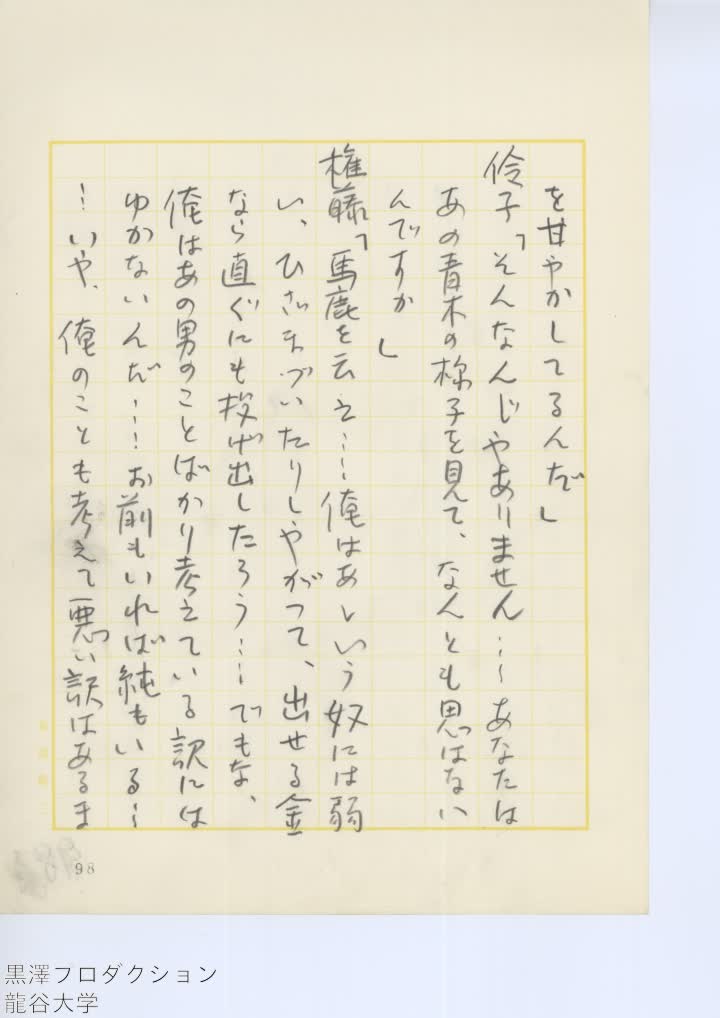 を甘やかしてるんだ」
伶子「そんなんじやありません……あなたは
あの青木の様子を見て、なんとも思はない
んですか」
権藤「馬鹿を云え……俺はあゝいう奴には弱
い、ひざまづいたりしやがつて、出せる金
なら直ぐにも投げ出したろう……でもな、
俺はあの男のことばかり考えている訳には
ゆかないんだ……お前もいれば純もいる…
…いや、俺のことも考えて悪い訳はあるま
98
黒澤プロダクション
龍谷大学